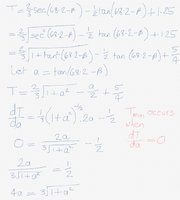 T = 2/3 sec(68.2-β) - 1/2 tan(68.2-β) + 1.25
= 2/3 √sec²(68.2-β) - 1/2 tan(68.2-β) + 1.25
= 2/3 √1+tan²(68.2-β) - 1/2 tan(68.2-β) + 5/4
Let a = tan(68.2-β)
T = 2/3 √1+a² - a/2 + 5/4
dT/da = 1/3 (1+a²)^-1/2 . 2a - 1/2
T min occurs when dT/da = 0
0 = 2a/3√1+a² - 1/2
2a/3√1+a² = 1/2
4a = 3√1+a²